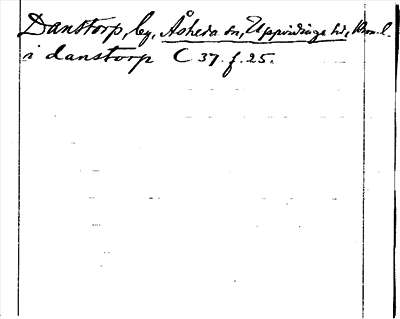 Danstorp, by, Åsheda sn, Uppvidinge hd, Kron. l.
i danstorp C 37. f. 25.